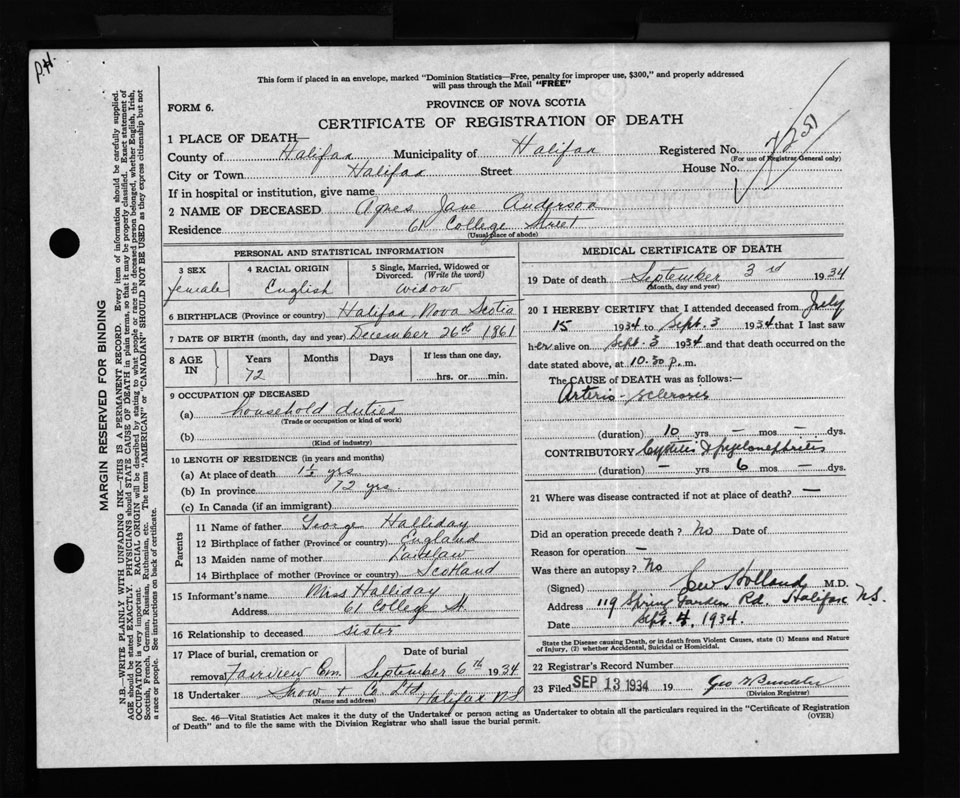 P.H.
This form if placed in an envelope, marked "Dominion Statistics—Free, penalty for improper use, $300," and properly addressed
will pass through the Mail "FREE"
FORM 6.
PROVINCE OF NOVA SCOTIA
CERTIFICATE OF REGISTRATION OF DEATH
1 PLACE OF DEATH—
County of Halifax Municipality of Halifax Registered No. 7251
(For use of Registrar General only)
City or Town Halifax Street House No.
If in hospital or institution, give name
2 NAME OF DECEASED Agnes Jane Anderson
Residence 61 College Street
(Usual place of abode)
PERSONAL AND STATISTICAL INFORMATION
3 SEX female
4 RACIAL ORIGIN English
5 Single, Married, Widowed or Divorced. (Write the word) widow
6 BIRTHPLACE (Province or country) Halifax, Nova Scotia
7 DATE OF BIRTH (month, day and year) December 26th 1861
8 AGE IN Years 72 Months Days If less than one day, hrs. or min.
9 OCCUPATION OF DECEASED
(a) household duties
(Trade or occupation or kind of work)
(b)
(Kind of industry)
10 LENGTH OF RESIDENCE (in years and months)
(a) At place of death 1½ yrs
(b) In province 72 yrs.
(c) In Canada (if an immigrant)
Parents
11 Name of father George Halliday
12 Birthplace of father (Province or country) England
13 Maiden name of mother Laidlaw
14 Birthplace of mother (Province or country) Scotland
15 Informant's name Miss Halliday
Address 61 College St.
16 Relationship to deceased sister
17 Place of burial, cremation or removal Fairview Cem. Date of burial September 6th 1934
18 Undertaker Snow & Co. Ltd Halifax N.S
(Name and address)
MEDICAL CERTIFICATE OF DEATH
19 Date of death September 3rd 1934
(Month, day and year)
20 I HEREBY CERTIFY that I attended deceased from July
15 1934 to Sept. 3 1934 that I last saw
her alive on Sept. 3 1934 and that death occurred on the
date stated above, at 10.30 p.m.
The CAUSE OF DEATH was as follows:—
Arterio-sclerosis
(duration) 10 yrs – mos – dys.
CONTRIBUTORY Cystitis & pyelonephritis
(duration) – yrs 6 mos – dys.
21 Where was disease contracted if not at place of death? —
Did an operation precede death? No Date of
Reason for operation —
Was there an autopsy? No
(Signed) Holland M.D.
Address 119 Spring Garden Rd. Halifax N.S.
Date Sept. 4, 1934.
State the Disease causing Death, or in death from Violent Causes, state (1) Means and Nature
of Injury, (2) whether Accidental, Suicidal or Homicidal.
22 Registrar's Record Number
23 Filed SEP 13 1934 19 Geo
(Division Registrar)
Sec. 46—Vital Statistics Act makes it the duty of the Undertaker or person acting as Undertaker to obtain all the particulars required in the "Certificate of Registration
of Death" and to file the same with the Division Registrar who shall issue the burial permit. (OVER)
MARGIN RESERVED FOR BINDING
N.B.—WRITE PLAINLY WITH UNFADING INK—THIS IS A PERMANENT RECORD. Every item of information should be carefully supplied.
AGE should be stated EXACTLY. PHYSICIANS should STATE CAUSE OF DEATH in plain terms, so that it may be properly classified. Exact statement of
OCCUPATION is very important. RACIAL ORIGIN will be described by stating to what people or race the deceased person belonged, whether English, Irish,
Scottish, French, German, Russian, Ruthenian, etc. The terms "AMERICAN" or "CANADIAN" SHOULD NOT BE USED as they express citizenship but not
a race or people. See instructions on back of certificate.